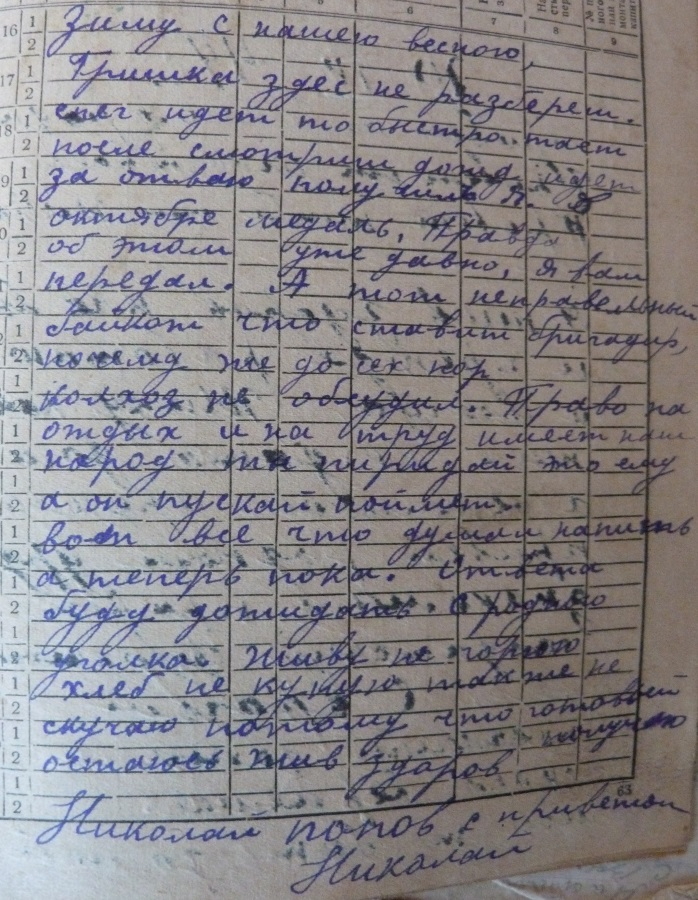 5 6 7 8 9
16 1 Зиму с нашею весною,
2
17 1 Гришка здес не разбереш.
2
18 1 снег идет то быстро тает
2 после смотриш дожд идет
1 за отвагу получилъ я. В
2
1 октябре медаль, Правда
2 об этом уже давно, я вам
1 передал. А тот неправельный
2
1 байкот что ставит бригадир,
2 почему же до сех пор
1
2 колхоз не обсудил. Право на
1 отдых и на труд имеет наш
2 народ ты передай это ему
1
2 а он пускай поймет.
1 вот все что думал написть
2
1 а теперь пока. Ответа
2 буду дожидать с родного
1
2 уголка. Живу не горюю
1 хлеб не купую также не
2
1 скучаю потому что готовый получаю
2 остаюсь жив здаров
1
2 63
Николай попов с приветом
Николай